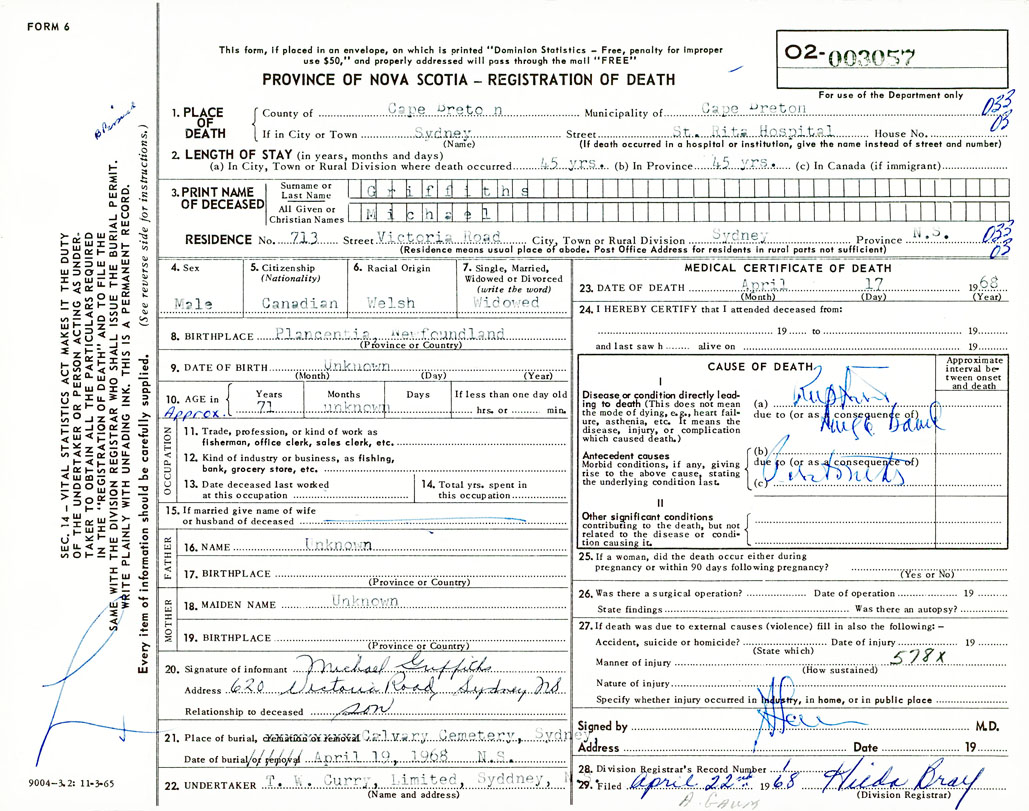 FORM 6
This form, if placed in an envelope, on which is printed "Dominion Statistics – Free, penalty for improper
use $50," and properly addressed will pass through the mail "FREE"
PROVINCE OF NOVA SCOTIA – REGISTRATION OF DEATH
02-003057
For use of the Department only
033
03
1. PLACE OF DEATH
County of Cape Breton Municipality of Cape Breton
If in City or Town Sydney Street St. Rita Hospital House No.
(Name) (If death occurred in a hospital or institution, give the name instead of street and number)
2. LENGTH OF STAY (in years, months and days)
(a) In City, Town or Rural Division where death occurred 45 yrs. (b) In Province 45 yrs. (c) In Canada (if immigrant)
3. PRINT NAME OF DECEASED
Surname or Last Name Griffiths
All Given or Christian Names Michael
RESIDENCE No. 713 Street Victoria Road City, Town or Rural Division Sydney Province N.S.
(Residence means usual place of abode. Post Office Address for residents in rural parts not sufficient)
033
03
4. Sex
Male
5. Citizenship
(Nationality)
Canadian
6. Racial Origin
Welsh
7. Single, Married,
Widowed or Divorced
(write the word)
Widowed
8. BIRTHPLACE Plancentia, Newfoundland
(Province or Country)
9. DATE OF BIRTH Unknown
(Month) (Day) (Year)
10. AGE in Years Months Days If less than one day old
Approx. 71 unknown hrs. or min.
OCCUPATION
11. Trade, profession, or kind of work as
fisherman, office clerk, sales clerk, etc.
12. Kind of industry or business, as fishing,
bank, grocery store, etc.
13. Date deceased last worked
at this occupation
14. Total yrs. spent in
this occupation
15. If married give name of wife
or husband of deceased
FATHER
16. NAME Unknown
17. BIRTHPLACE
(Province or Country)
MOTHER
18. MAIDEN NAME Unknown
19. BIRTHPLACE
(Province or Country)
20. Signature of informant Michael Griffiths
Address 620 Victoria Road Sydney NS
Relationship to deceased son
21. Place of burial, cremation or removal Calvary Cemetery, Sydney,
Date of burial or removal April 19, 1968 N.S.
22. UNDERTAKER T. W. Curry, Limited, Syddney, N
(Name and address)
MEDICAL CERTIFICATE OF DEATH
23. DATE OF DEATH April 17 1968
(Month) (Day) (Year)
24. I HEREBY CERTIFY that I attended deceased from:
19 to 19
and last saw h alive on 19
CAUSE OF DEATH
Approximate
interval be-
tween onset
and death
I
Disease or condition directly lead-
ing to death (This does not mean
the mode of dying, e.g., heart fail-
ure, asthenia, etc. It means the
disease, injury, or complication
which caused death.)
(a)
due to (or as a consequence of)
Antecedent causes
Morbid conditions, if any, giving
rise to the above cause, stating
the underlying condition last.
(b)
due to (or as a consequence of)
(c)
II
Other significant conditions
contributing to the death, but not
related to the disease or condi-
tion causing it.
25. If a woman, did the death occur either during
pregnancy or within 90 days following pregnancy?
(Yes or No)
26. Was there a surgical operation? Date of operation 19
State findings Was there an autopsy?
27. If death was due to external causes (violence) fill in also the following: –
Accident, suicide or homicide? Date of injury 19
(State which)
Manner of injury 578X
(How sustained)
Nature of injury
Specify whether injury occurred in industry, in home, or in public place
Signed by M.D.
Address Date 19
28. Division Registrar's Record Number
29. Filed April 22nd 1968 Hilda Bray
(Division Registrar)
SEC. 14 – VITAL STATISTICS ACT MAKES IT THE DUTY
OF THE UNDERTAKER OR PERSON ACTING AS UNDER-
TAKER TO OBTAIN ALL THE PARTICULARS REQUIRED
IN THE "REGISTRATION OF DEATH" AND TO FILE THE
SAME WITH THE DIVISION REGISTRAR WHO SHALL ISSUE THE BURIAL PERMIT.
WRITE PLAINLY WITH UNFADING INK. THIS IS A PERMANENT RECORD.
Every item of information should be carefully supplied. (See reverse side for instructions.)
9004-3.2: 11-3-65